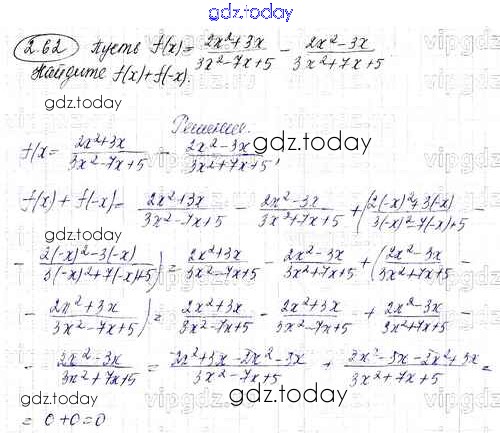 gdz.today
2.62 Пусть f(x) = (2x²+3x)/(3x²-7x+5) - (2x²-3x)/(3x²+7x+5)
Найдите f(x)+f(-x).
gdz.today
Решение.
f(x = (2x²+3x)/(3x²-7x+5) - (2x²-3x)/(3x²+7x+5),
gdz.today
f(x) + f(-x) = (2x²+3x)/(3x²-7x+5) - (2x²-3x)/(3x²+7x+5) + ((2(-x)²+3(-x))/(3(-x)²-7(-x)+5) -
- (2(-x)²-3(-x))/(3(-x)²+7(-x)+5)) = (2x²+3x)/(3x²-7x+5) - (2x²-3x)/(3x²+7x+5) + ((2x²-3x)/(3x²+7x+5) -
- (2x²+3x)/(3x²-7x+5)) = (2x²+3x)/(3x²-7x+5) - (2x²+3x)/(3x²-7x+5) + (2x²-3x)/(3x²+7x+5) -
- (2x²-3x)/(3x²+7x+5) = (2x²+3x-2x²-3x)/(3x²-7x+5) + (2x²-3x-2x²+3x)/(3x²+7x+5) =
= 0+0=0
gdz.today
gdz.today